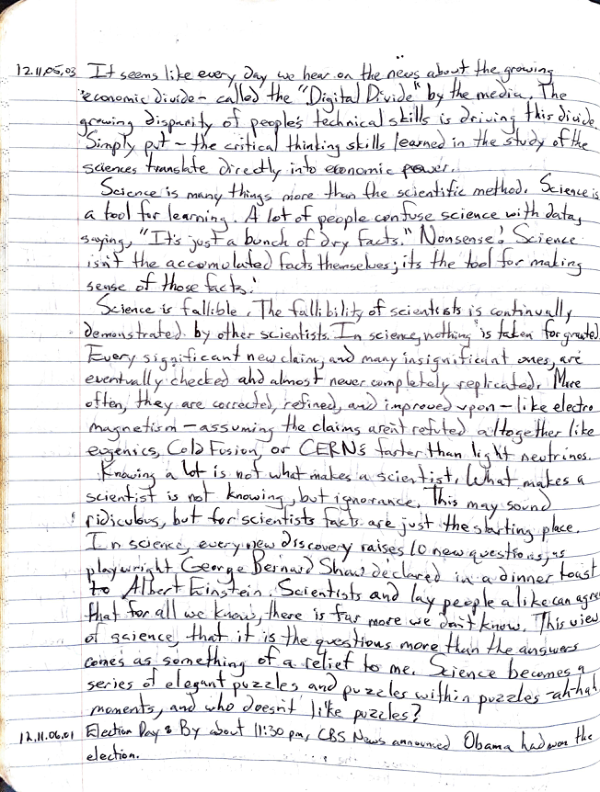 12.11.05.03 It seems like every day we hear on the news about the growing
economic divide - called the "Digital Divide" by the media. The
growing disparity of people's technical skills is driving this divide.
Simply put - the critical thinking skills learned in the study of the
sciences translate directly into economic power.
Science is many things more than the scientific method. Science is
a tool for learning. A lot of people confuse science with data,
saying, "It's just a bunch of dry facts." Nonsense! Science
isn't the accumulated facts themselves; its the tool for making
sense of those facts.
Science is fallible. The fallibility of scientists is continually
demonstrated by other scientists. In science, nothing is taken for granted.
Every significant new claim, and many insignificant ones, are
eventually checked and almost never completely replicated. More
often, they are corrected, refined, and improved upon - like electro
magnetism - assuming the claims aren't refuted altogether like
eugenics, Cold Fusion, or CERN's faster than light neutrinos.
Knowing a lot is not what makes a scientist. What makes a
scientist is not knowing, but ignorance. This may sound
ridiculous, but for scientists facts are just the starting place.
In science, every new discovery raises 10 new questions, as
playwright George Bernard Shaw declared in a dinner toast
to Albert Einstein. Scientists and lay people alike can agree
that for all we know, there is far more we don't know. This view
of science, that it is the questions more than the answers
comes as something of a relief to me. Science becomes a
series of elegant puzzles and puzzles within puzzles - ah-hah
moments, and who doesn't like puzzles?
12.11.06.01 Election Day: By about 11:30 pm, CBS News announced Obama had won the
election.